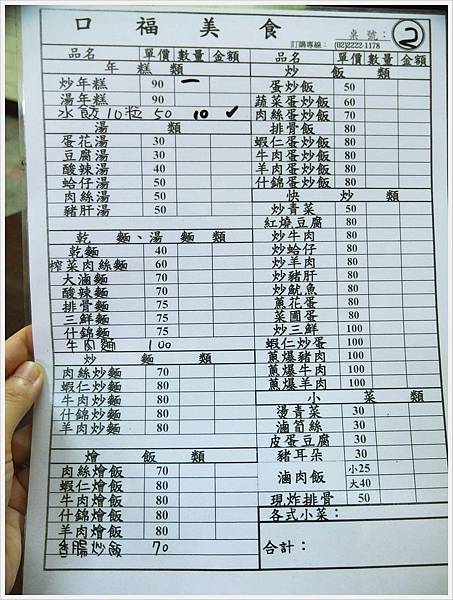 口福美食
訂購專線：(02)2222-1178
桌號：2
品名 單價 數量 金額
年糕類
炒年糕 90 一
湯年糕 90
水餃10粒 50 10 ✓
湯類
蛋花湯 30
豆腐湯 30
酸辣湯 40
蛤仔湯 50
肉絲湯 50
豬肝湯 50
乾麵、湯麵類
乾麵 40
榨菜肉絲麵 60
大滷麵 70
酸辣麵 70
排骨麵 75
三鮮麵 75
什錦麵 75
牛肉麵 100
炒麵類
肉絲炒麵 70
蝦仁炒麵 80
牛肉炒麵 80
什錦炒麵 80
羊肉炒麵 80
燴飯類
肉絲燴飯 70
蝦仁燴飯 80
牛肉燴飯 80
什錦燴飯 80
羊肉燴飯 80
香腸炒飯 70
品名 單價 數量 金額
炒飯類
蛋炒飯 50
蔬菜蛋炒飯 60
肉絲蛋炒飯 70
排骨飯 80
蝦仁蛋炒飯 80
牛肉蛋炒飯 80
羊肉蛋炒飯 80
什錦蛋炒飯 80
快炒類
炒青菜 50
紅燒豆腐 80
炒牛肉 80
炒蛤仔 80
炒羊肉 80
炒豬肝 80
炒魷魚 80
蔥花蛋 80
菜圃蛋 80
炒三鮮 100
蝦仁炒蛋 100
蔥爆豬肉 100
蔥爆牛肉 100
蔥爆羊肉 100
小菜類
燙青菜 30
滷筍絲 30
皮蛋豆腐 30
豬耳朵 30
滷肉飯 小25
大40
現炸排骨 50
各式小菜：
合計：